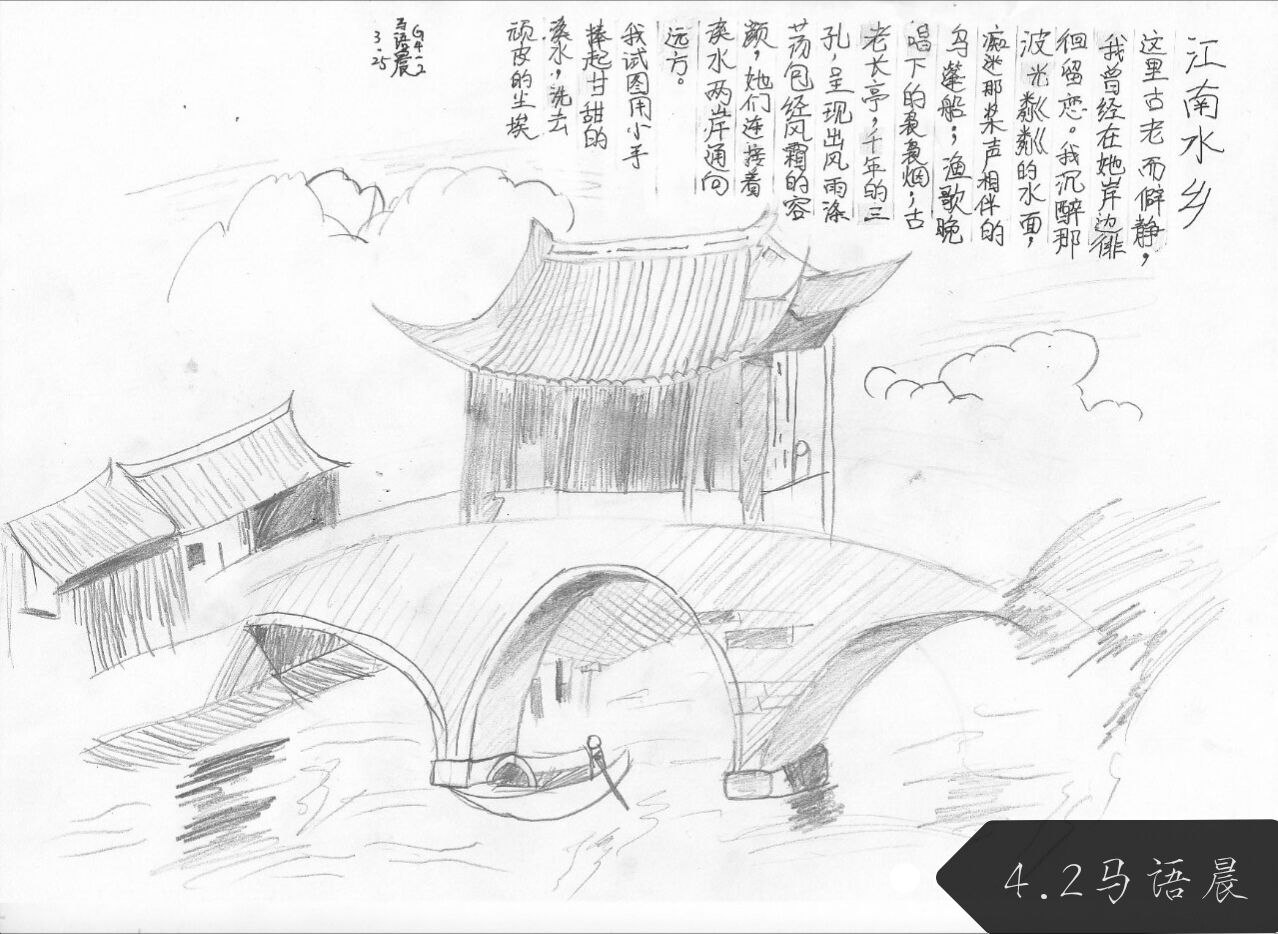 江南水乡
这里古老而僻静，
我曾经在她岸边徘
徊留恋。我沉醉那
波光粼粼的水面，
痴迷那桨声相伴的
乌篷船；渔歌晚
唱下的袅袅烟；古
老长亭，千年的三
孔，呈现出风雨涤
荡包经风霜的容
颜，她们连接着
溪水两岸通向
远方。
我试图用小手
捧起甘甜的
溪水，洗去
顽皮的尘埃
G4-2
马语晨
3.25
4.2马语晨